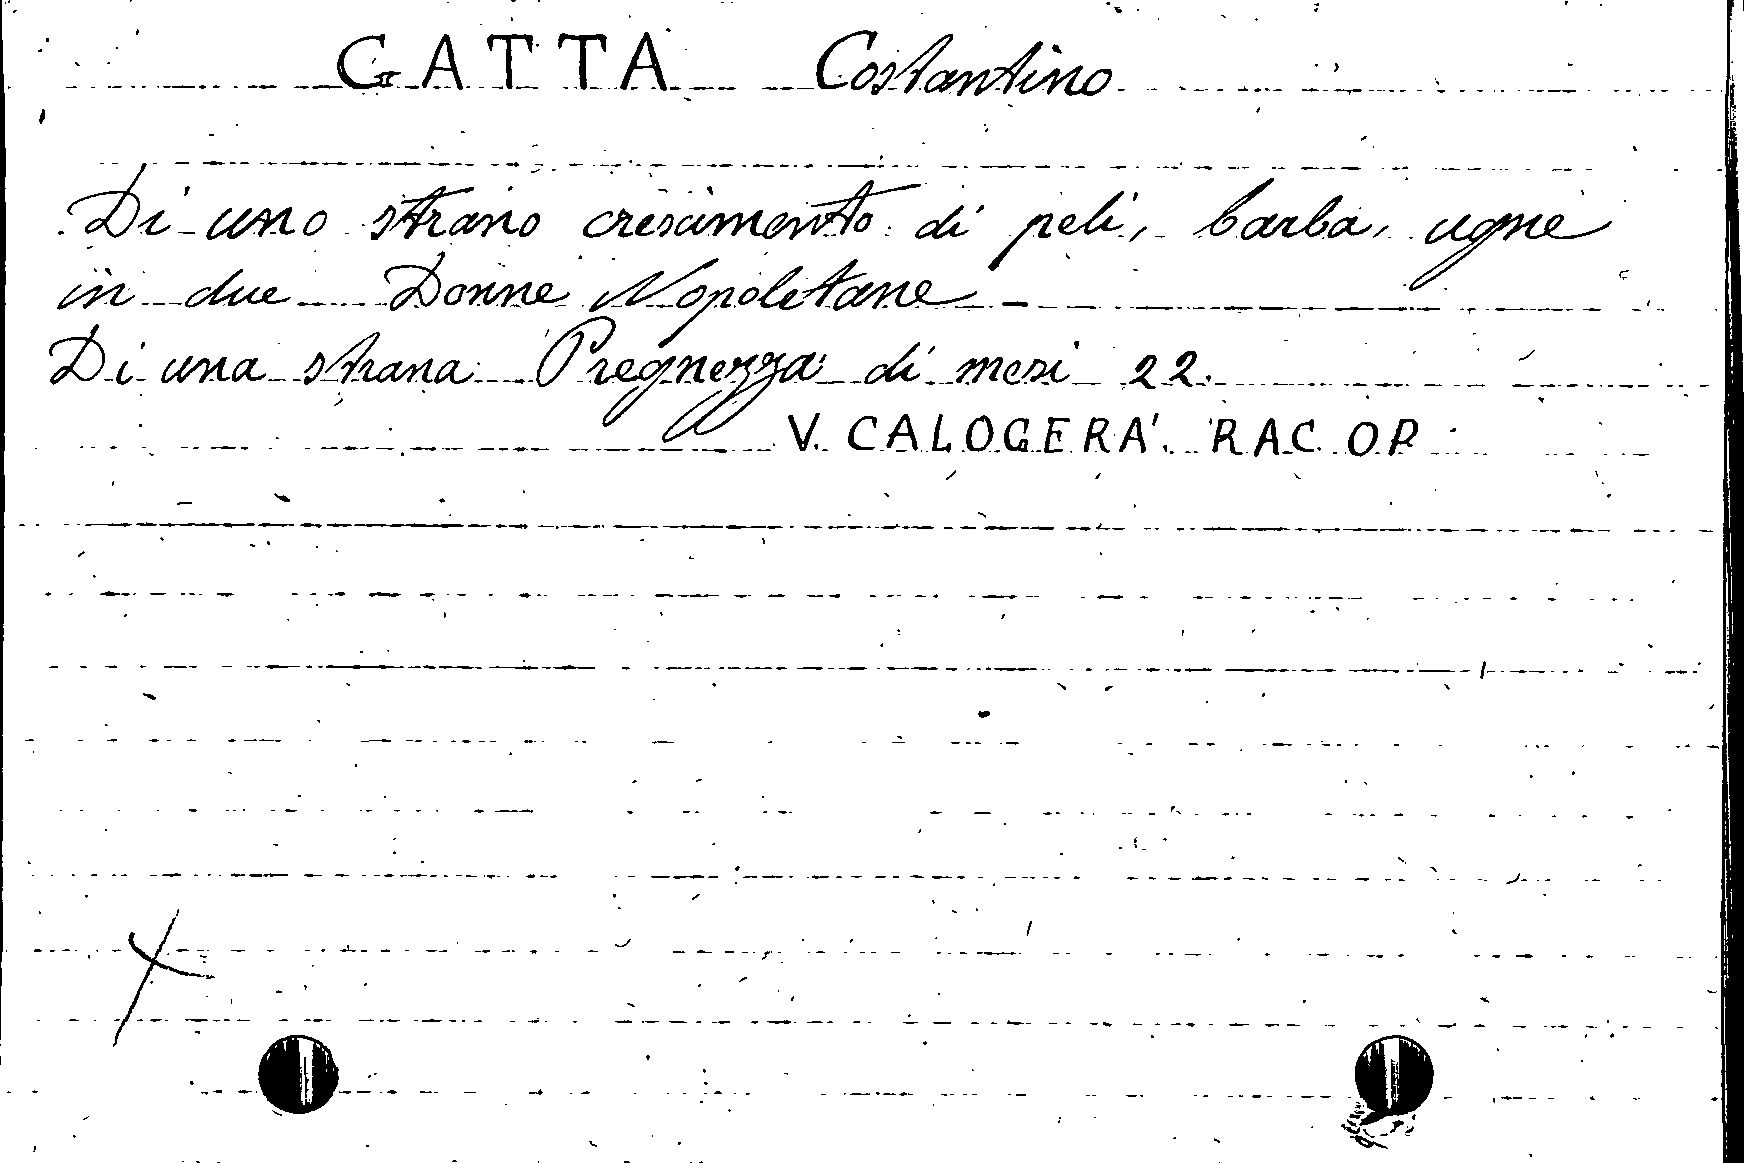 GATTA Costantino
Di uno strano crescimento di peli, barba, ugne
in due Donne Napoletane -
Di una strana Pregnezza di mesi 22.
V. CALOGERA'. RAC. OP.